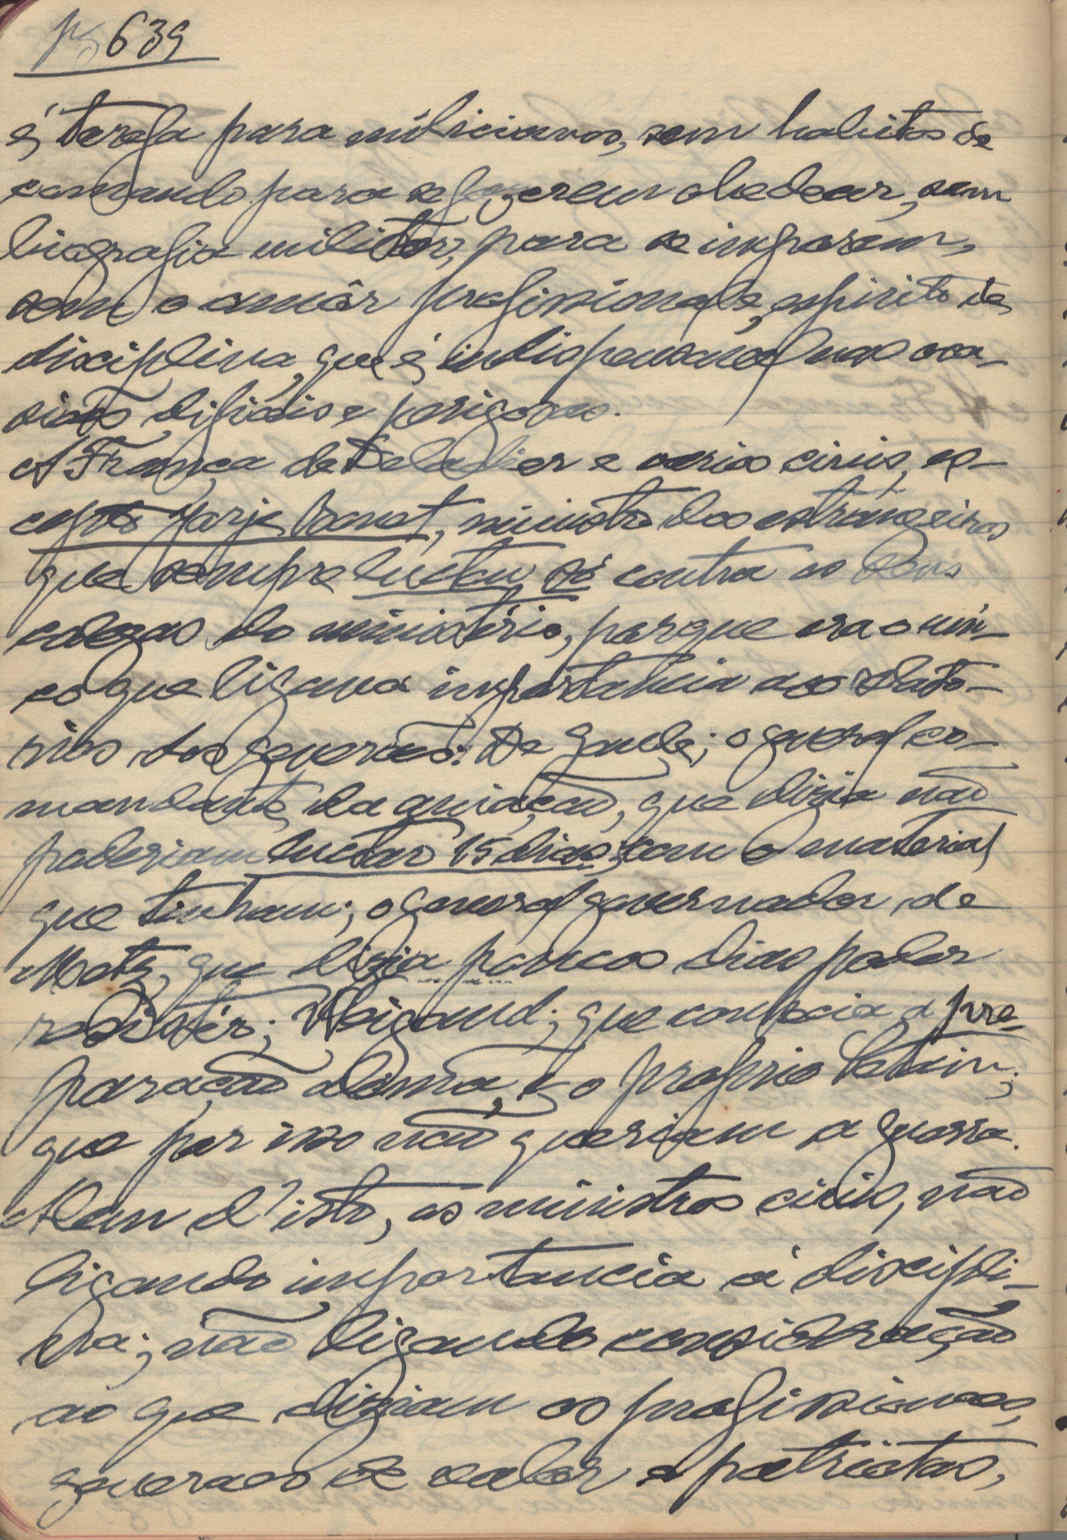 pg 639
é tarefa para milicianos, sem habitos de
comando para se fazerem obedecer, sem
biografia militar, para se imporem,
sem o amôr profissional e, espirito de
disciplina, que é indispensavel nas oca-
siões dificeis e perigosas.
A França de Daladier e varios civis, es-
cepto Jorje Bonet, ministro dos estrangeiros
que sempre luctou só contra os seus
colegas do ministério, porque era o uni-
co que ligava importancia aos relato-
rios dos generaes: De Gaule; o general co-
mandante da aviação, que dizia não
poderiam luctar 15 dias, com o material
que tinham; o general governador de
Metz, que dizia poucos dias poder
resistir; Weigand; que conhecia a pre-
paração alemã, e o proprio Petain;
que por isso não queriam a guerra.
Alem d'isto, os ministros civis, não
ligando importancia á discipli-
na; não ligando consideração
ao que diziam os profissionaes,
generaes de valor e patriotas,